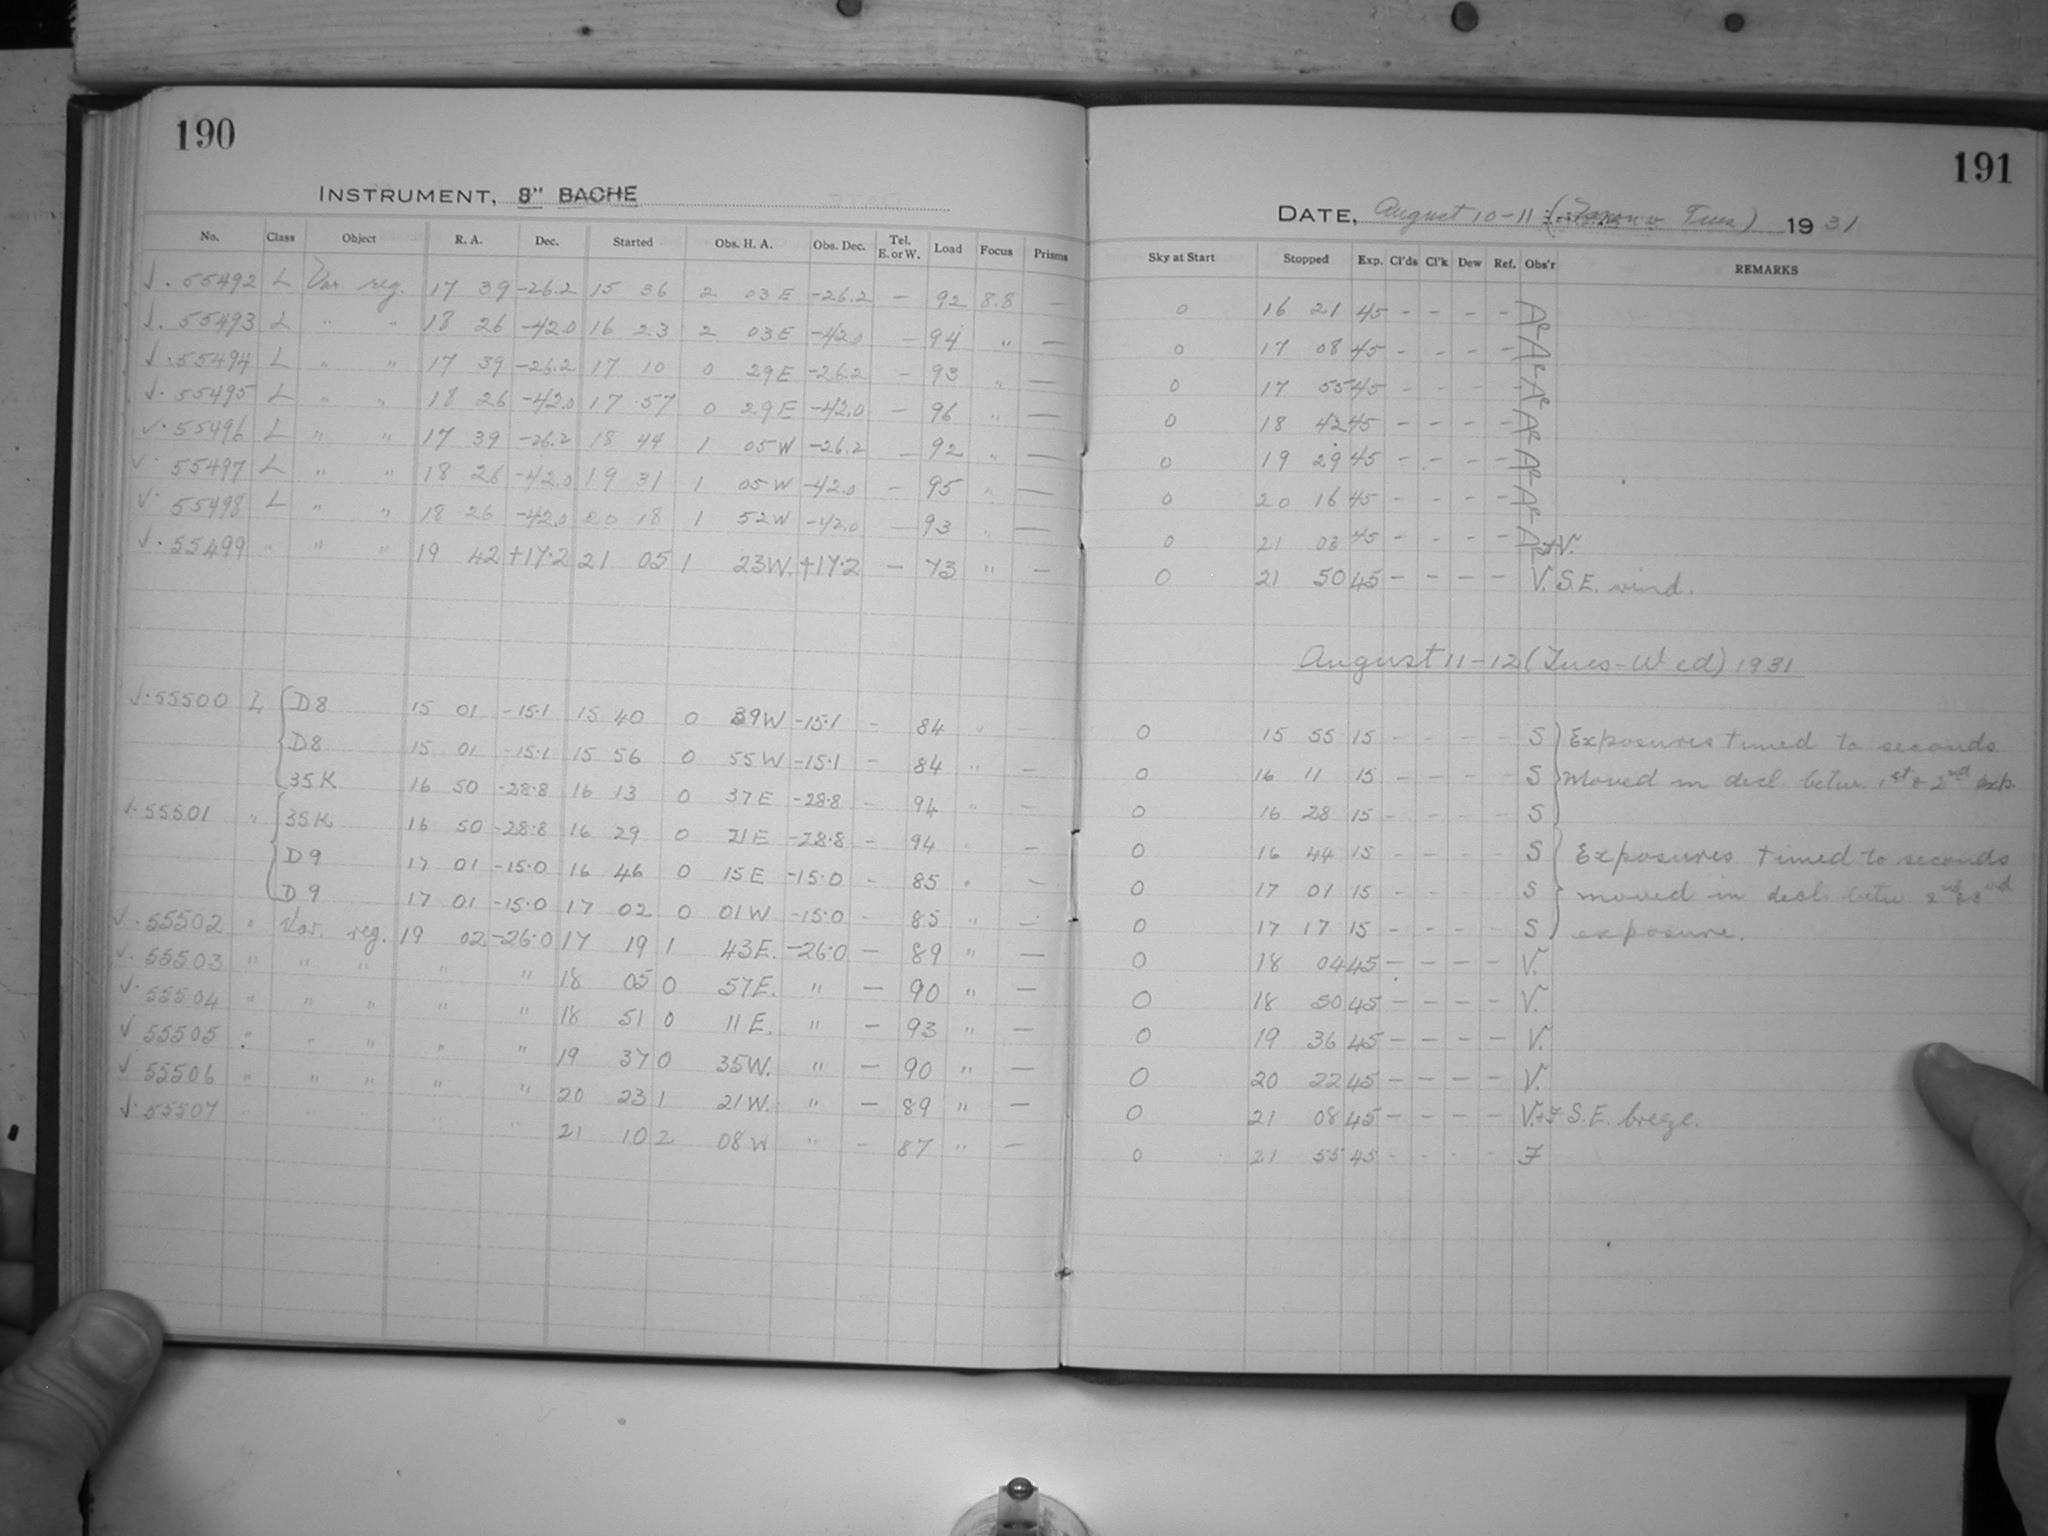 190
INSTRUMENT, 8" BACHE
No. Class Object R. A. Dec. Started Obs. H. A. Obs. Dec. Tel. E. or W. Load Focus Prisms
√. 55492 L Var. reg. 17 39 -26.2 15 36 2 03 E -26.2 - 92 8.8 -
√. 55493 L " " 18 26 -42.0 16 23 2 03 E -42.0 - 94 " -
√. 55494 L " " 17 39 -26.2 17 10 0 29 E -26.2 - 93 " -
√. 55495 L " " 18 26 -42.0 17 57 0 29 E -42.0 - 96 " -
√. 55496 L " " 17 39 -26.2 18 44 1 05 W -26.2 - 92 " -
√. 55497 L " " 18 26 -42.0 19 31 1 05 W -42.0 - 95 " -
√. 55498 L " " 18 26 -42.0 20 18 1 52 W -42.0 - 93 " -
√. 55499 " " " 19 42 +17.2 21 05 1 23 W. +17.2 - 73 " -
√. 55500 L D8 15 01 -15.1 15 40 0 39 W -15.1 - 84 " -
D8 15 01 -15.1 15 56 0 55 W -15.1 - 84 " -
35K 16 50 -28.8 16 13 0 37 E -28.8 - 94 " -
√. 55501 " 35K 16 50 -28.8 16 29 0 21 E -28.8 - 94 " -
D9 17 01 -15.0 16 46 0 15 E -15.0 - 85 " -
D9 17 01 -15.0 17 02 0 01 W -15.0 - 85 " -
√. 55502 " Var. reg. 19 02 -26.0 17 19 1 43 E. -26.0 - 89 " -
√. 55503 " " " " " 18 05 0 57 E. " - 90 " -
√. 55504 " " " " " 18 51 0 11 E. " - 93 " -
√ 55505 " " " " " 19 37 0 35 W. " - 90 " -
√ 55506 " " " " " 20 23 1 21 W. " - 89 " -
√. 55507 " " " " " 21 10 2 08 W " - 87 " -
191
DATE, August 10-11 ( Tues) 1931
Sky at Start Stopped Exp. Cl'ds Cl'k Dew Ref. Obs'r REMARKS
0 16 21 45 - - - -
0 17 08 45 - - - -
0 17 55 45 - - - -
0 18 42 45 - - - -
0 19 29 45 - - - -
0 20 16 45 - - - -
0 21 03 45 - - - - +V.
0 21 50 45 - - - - V. S.E. wind.
August 11-12 (Tues-Wed) 1931
0 15 55 15 - - - - S Exposures timed to seconds
0 16 11 15 - - - - S Moved in decl. betw. 1st & 2nd exp.
0 16 28 15 - - - - S
0 16 44 15 - - - - S Exposures timed to seconds
0 17 01 15 - - - - S moved in decl. betw 2nd & 3rd
0 17 17 15 - - - - S exposure.
0 18 04 45 - - - - V.
0 18 50 45 - - - - V.
0 19 36 45 - - - - V.
0 20 22 45 - - - - V.
0 21 08 45 - - - - V.+F S.E. breeze.
0 21 55 45 - - - - F